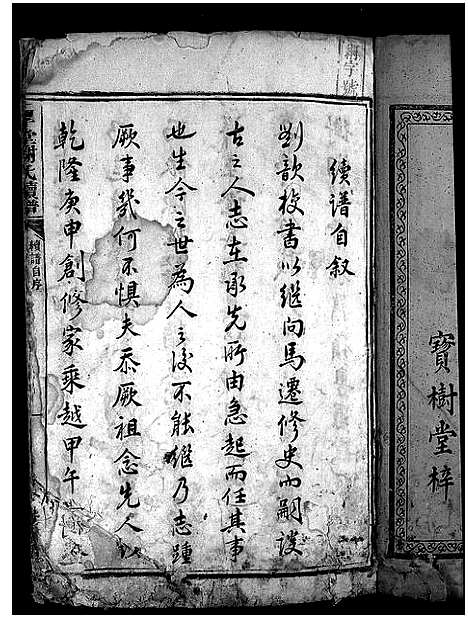 寶樹堂梓
續譜自叙
劉歆校書以繼向馬遷修史以嗣談
古之人志在承先所由急起而任其事
也生今之世為人之後不能繼乃志踵
厥事幾何不惧夫忝厥祖念先人
乾隆庚申創修家乘越甲午
堂謝氏續譜
續譜自序